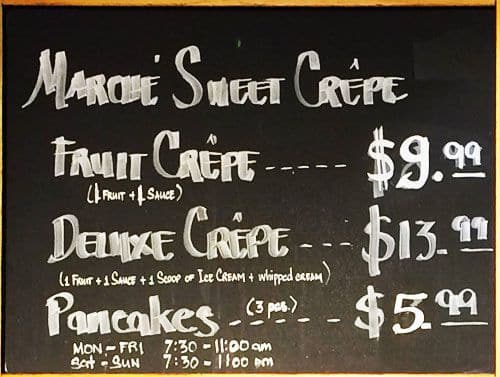 MARCHÉ SWEET CRÊPE
FRUIT CRÊPE ----- $9.99
(1 FRUIT + 1 SAUCE)
DELUXE CRÊPE --- $13.99
(1 FRUIT + 1 SAUCE + 1 SCOOP OF ICE CREAM + whipped CREAM)
Pancakes (3 pcs.) ----- $5.99
MON - FRI 7:30 - 11:00 am
Sat - SUN 7:30 - 1:00 pm